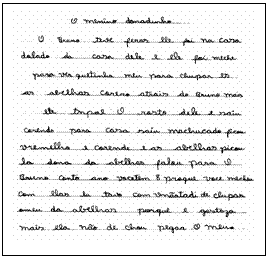 O menino danadinho
O Bruno teve ferias ele foi na casa
dalado da casa dele e ele foi meche
para ver quetinha meu para chupar es
as abelhas coreno atrais do Bruno mais
ele tropol O rosto dele e saiu
corendo para casa saiu machucado ficou
vremelho e corende e as abelhas picou
la dona da abelhas falou para O
Bruno conto ano vocetem 8 proque voce mecheu
com elas eu tava com vontadi de chupar
omeu da abelhas porque e gostoza
mais ela não de chou pegar O meu